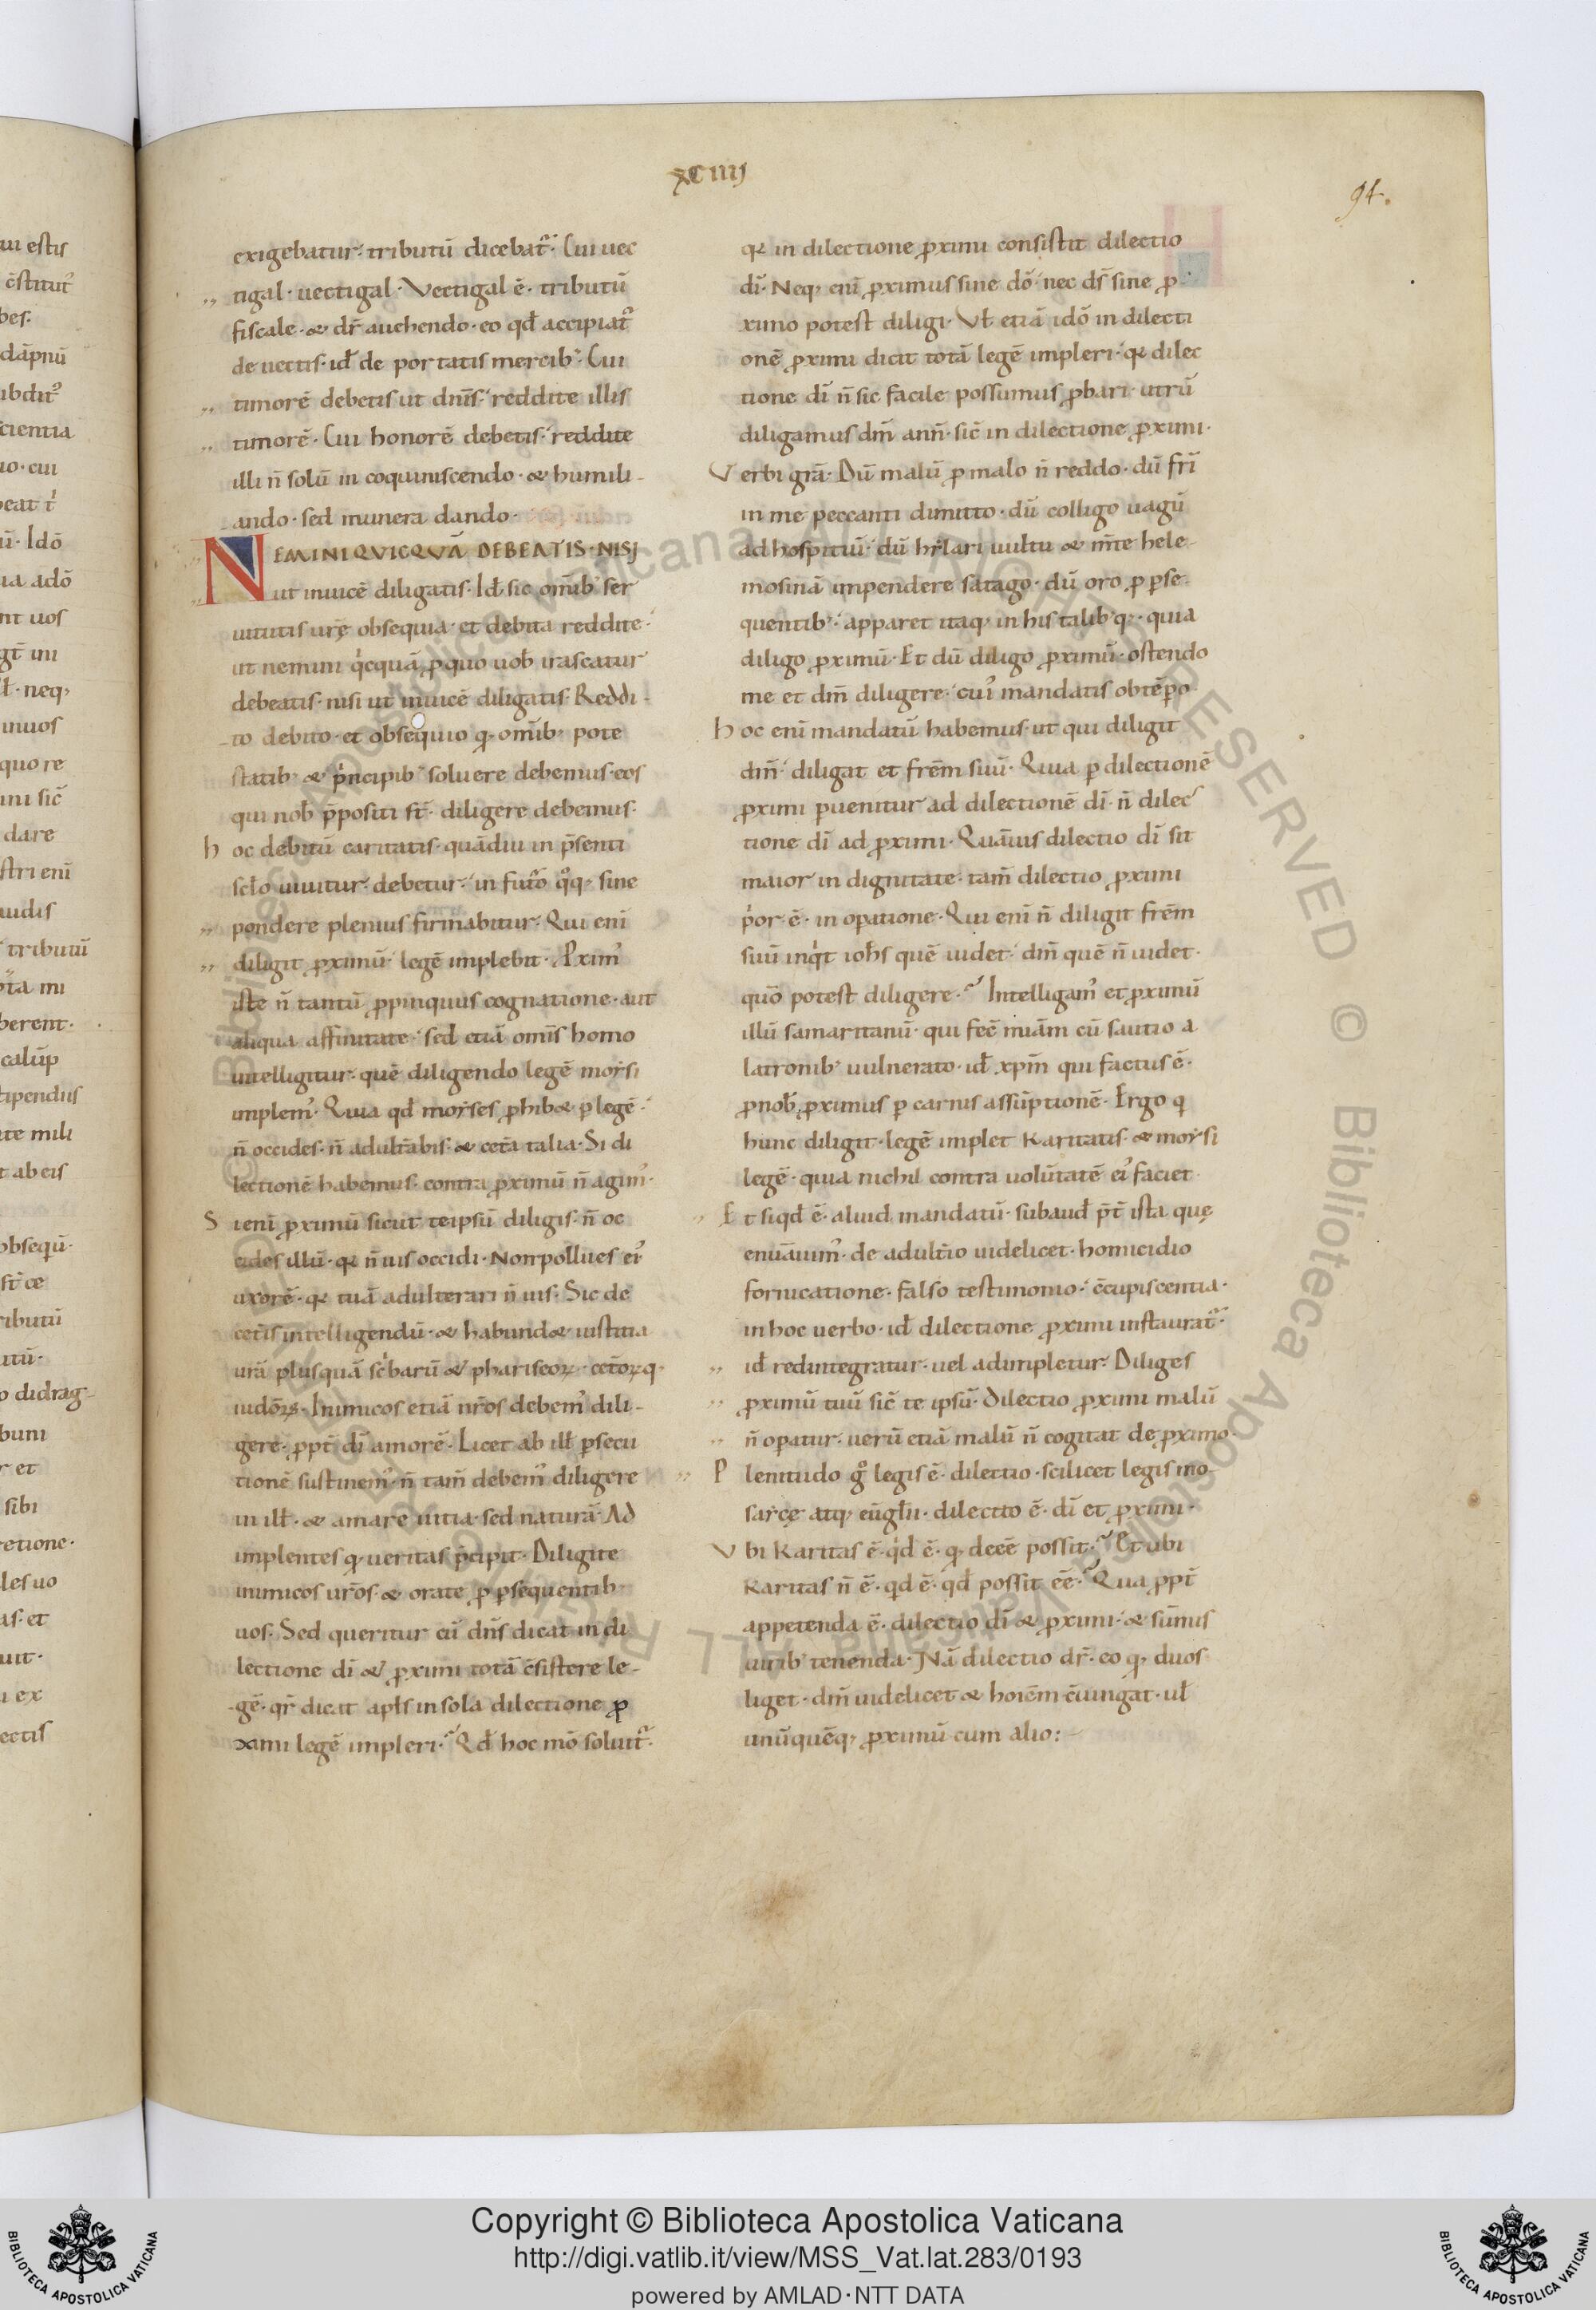 xciiij
94.
exigebatur· tributū dicebat᷑· Cui uec
tigal· uectigal· Vectigal ē· tributū
fiscale· & dr̄ a uehendo· eo qđ accipiat᷑
de uectis· iđ de portatis mercib;· Cui
timorē debetis ut dnīs· reddite illis
timorē· Cui honorē debetis· reddite
illi n̄ solū in coquiniscendo· & humili-
ando· sed munera dando·
NEMINI QVICQVĀ DEBEATIS· NISI
ut inuicē diligatis· Iđ sic om̄ib; ser
uitutis urę̄ obsequia· et debita reddite·
ut nemini qicquā p quo uob̄ irascatur
debeatis· nisi ut inuicē diligatis· Reddi-
to debito· et obsequio q· om̄ib; pote
statib; & pincipib; soluere debemus· eos
qui nob̄ p̄positi st̄· diligere debemus·
hoc debitū caritatis· quādiu in p̄senti
sclo uiuitur· debetur· in futo qq; sine
pondere plenius firmabitur· Qui enī
diligit proximū· legē implebit· Proxim᾽
iste n̄ tantū propinquus cognatione· aut
aliqua affinitate· sed etiā omīs homo
intelligitur· quē diligendo legē moysi
implem᾽· Quia qđ moyses prohib& p legē·
n̄ occides· n̄ adult̄abis· & cet̄a talia· Si di
lectionē habemus· contra proximū n̄ agim᾽·
Si enī proximū sicut teipsū diligis· n̄ oc
cides illū· q; n̄ uis occidi· Non pollues ei᾽
uxorē· q; tuā adulterari n̄ uis· Sic de
cet̄is intelligendū· & habund& iustitia
urā plusquā scibarū & phariseoꝝ· cet̄oꝝq·
iudōꝝ· Inimicos etiā nr̄os debem᾽ dili-
gere· propt̄ dī amorē· Licet ab ill̄ psecu
tionē sustinem᾽· n̄ tam̄ debem᾽ diligere
in ill̄· & amare uitia· sed naturā· Ad
implentes q· ueritas p̄cipit· Diligite
inimicos ur̄os· & orate p psequentib;
uos· Sed queritur cū dn̄s dicat in di
lectione dī & proximi totā c̄sistere le-
gē· qr̄ dicat apl̄s in sola dilectione pro
ximi legē impleri· Qđ hoc mō soluit᷑·
q; in dilectione proximi consistit dilectio
dī· Neq; enī proximus sine dō· nec ds̄ sine pro
ximo potest diligi· Vl̄ etiā idō in dilecti
onē proximi dicit totā legē impleri· q; dilec
tione dī n̄ sic facile possumus probari· utrū
diligamus dm̄ ann̄· sic̄ in dilectione proximi·
Verbi grā· Dū malū p malo n̄ reddo· dū frī
in me peccanti dimitto· dū colligo uagū
ad hospitiū· dū hylari uultu & m̄te hele-
mosinā impendere satago· dū oro p pse
quentib;· apparet itaq; in his talib; q;· quia
diligo proximū· Et dū diligo proximū· ostendo
me et dm̄ diligere· cui᾽ mandatis obtēpo
hoc enī mandatū habemus· ut qui diligit
dm̄· diligat et frēm suū· Quia p dilectionē
proximi peruenitur ad dilectionē dī· n̄ dilec
tione dī ad proximi· Quāuis dilectio dī sit
maior in dignitate· tam̄ dilectio proximi
pior ē· in opatione· Qui enī n̄ diligit frēm
suū inqit ioh̄s quē uidet· dm̄ quē n̄ uidet·
quō potest diligere· Intelligam᾽ et proximū
illū samaritanū· qui fec̄ miām cū sautio a
latronib; uulnerato· iđ xpm̄ qui factus ē·
pro nob̄ proximus p carnis assūptionē· Ergo q
hunc diligit· legē implet Karitatis· & moysi
legē· quia nichil contra uolūtatē ei᾽ faciet·
Et siqđ ē· aliud mandatū· subauđ p̄t̄ ista quę
enūauim᾽· de adult̄io uidelicet· homicidio
fornicatione· falso testimonio· c̄cupiscentia·
in hoc uerbo· iđ dilectione proximi instaurat᷑·
iđ redintegratur· uel adimpletur· Diliges
proximū tuū sic̄ te ipsū· Dilectio proximi malū
n̄ opatur· uerū etiā malū n̄ cogitat de proximo·
Plenitudo g° legis ē· dilectio· scilicet legis mo-
saycę atq; eūglii· dilectio ē· dī et proximi·
Vbi Karitas ē· qid ē· q; deēe possit· Et ubi
Karitas n̄ ē· qd ē· qđ possit eē· Qua propt̄
appetenda ē· dilectio dī & proximi· & sūmis
uirib; tenenda· Nā dilectio dr̄· eo q; duos
liget· dm̄ uidelicet & hoiēm c̄iungat· ul̄
unūquēq; proximū cum alio:-
Copyright © Biblioteca Apostolica Vaticana
http://digi.vatlib.it/view/MSS_Vat.lat.283/0193
powered by AMLAD·NTT DATA
BIBLIOTECA APOSTOLICA VATICANA
BIBLIOTECA APOSTOLICA VATICANA